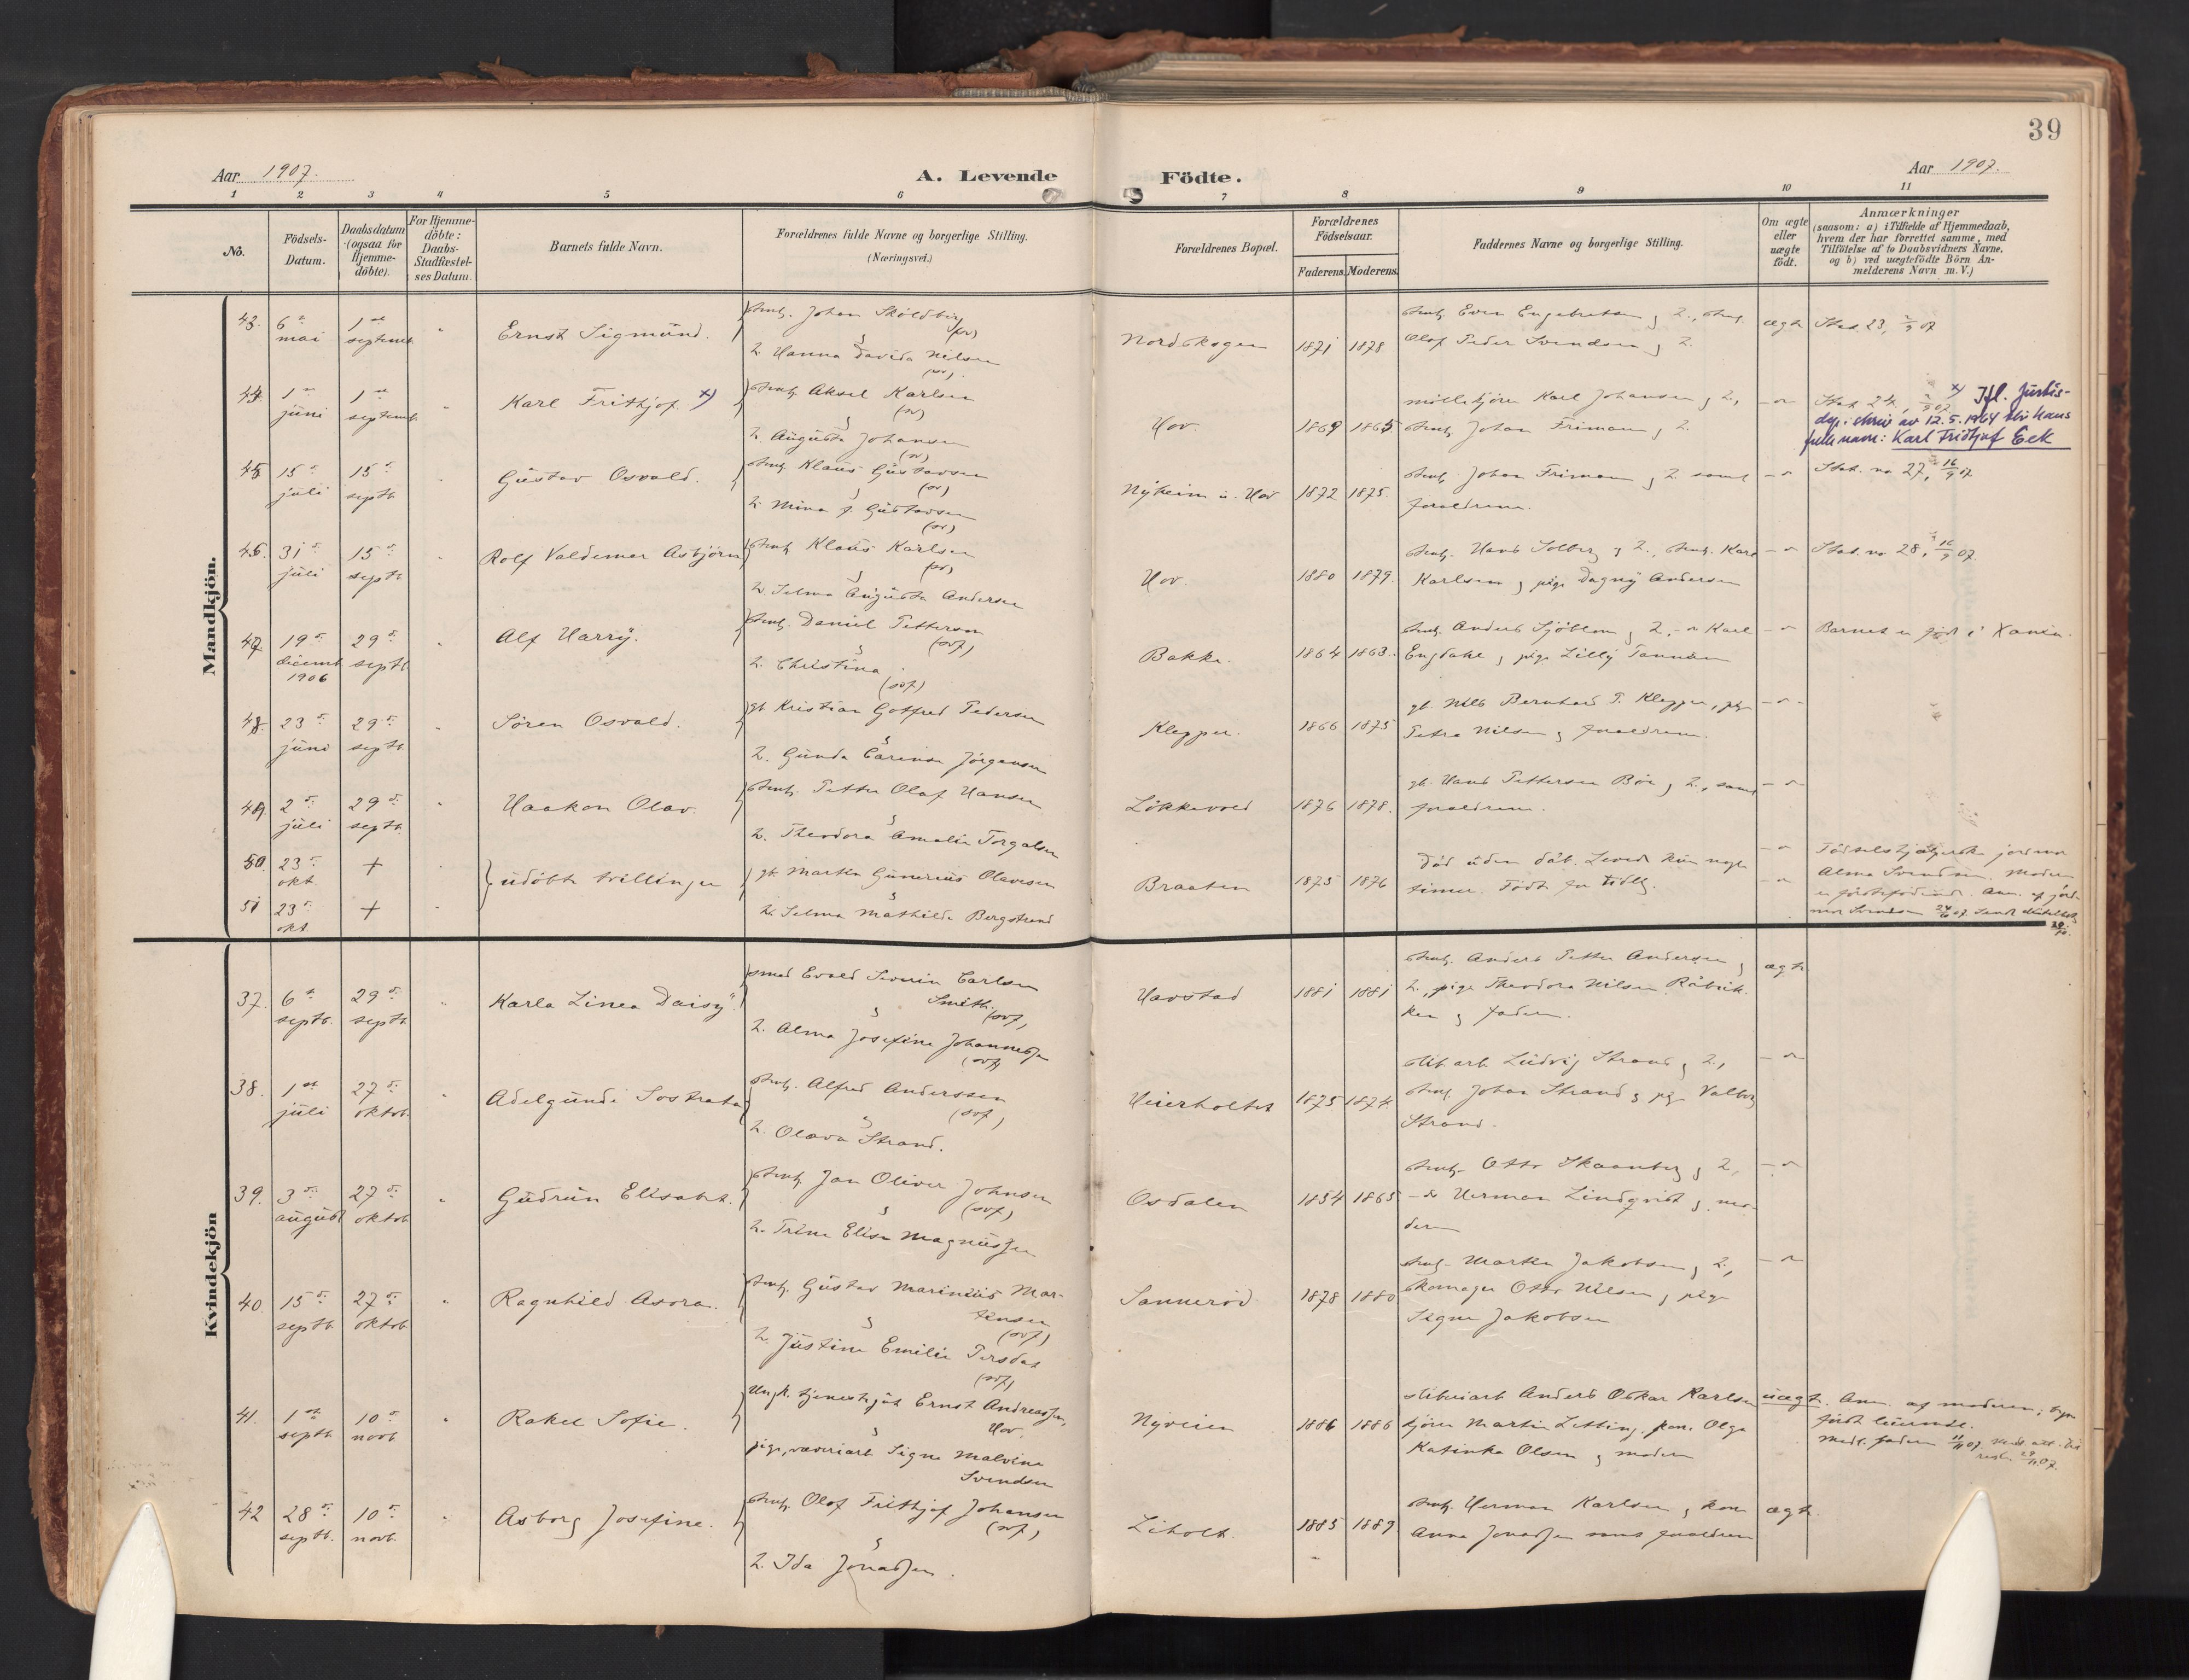 39
Aar 1907.
A. Levende Födte.
Aar 1907.
1 2 3 4 5 6 7 8 9 10 11
No.
Födsels-
Datum.
Daabsdatum
(ogsaa for
Hjemme-
döbte).
For Hjemme-
döbte:
Daabs-
Stadfæstel-
ses Datum.
Barnets fulde Navn.
Forældrenes fulde Navne og borgerlige Stilling.
(Næringsvei.)
Forældrenes Bopæl.
Forældrenes
Födselsaar.
Faderens. Moderens.
Faddernes Navne og borgerlige Stilling.
Om ægte
eller
uægte
födt.
Anmærkninger
(saasom: a) i Tilfælde af Hjemmedaab,
hvem der har forrettet samme, med
Tilföielse af to Daabsvidners Navne,
og b) ved uægtefödte Börn An-
melderens Navn m. V.)
Mandkjön.
43. 6
mai
1
septemb
Ernst Sigmünd.
Johan Sköldberg
(sv)
&
h. Hanna Davida Nilsen
(sv).
Nordskogen 1871 1878
Even Engebretsen & h.,
Olaf Peder Svendsen & h.
ægte
Stat. 23, 2/9 07
44. 1
jüni
1
septemb
Karl Frithjof. x)
Aksel Karlsen
(sv)
&
h. Augüsta Johansen
(sv)
Hov. 1869 1865
möllekjörer Karl Johansen & h.,
Johan Friman & h.
Stat. 24, 2/9 07
x) Ifl. Justis-
dep. i skriv av 12.5.1964 blir hans
fulle navn: Karl Fridtjof Eek
45. 15
jüli
15
septb
Güstav Osvald.
Klaüs Güstavsen
(sv)
&
h. Mina f. Güstavsen
(sv)
Nÿheim ü. Hov 1872 1875.
Johan Friman & h. samt
forældrene.
Stat. no 27, 16/9 07
46. 31
jüli
15
septb
Rolf Valdemar Asbjörn
Klaüs Karlsen
(sv)
&
h. Selma Aügüsta Andersen
Hov. 1880 1879.
Hans Solberg & h., Karl
Karlsen & pige Dagnÿ Andersen
Stat. no 28, 16/9 07.
47. 19
decemb
1906
29
septb
Alf Harrÿ.
Daniel Pettersen
(svf)
&
h. Christina
(svf)
Bakke. 1864 1863.
Anders Sjöblom & h., Karl
Engdahl & pige Lillÿ
Barnet er født i
48. 23
jüni
29
septb.
Sören Osvald.
gb. Kristian Gotfred Pedersen
&
h. Günda Carinse Jörgensen
Klepper. 1866 1875
gb. Nils Bernhard P. Klepper, pige
Petra Nilsen & forældrene.
49. 2
jüli
29
septb.
Haakon Olav.
Petter Olaf Hansen
&
h. Theodora Amalie Torgalsen
Lökkevold 1876 1878.
gb. Hans Pettersen Böe & h., samt
forældrene.
50. 23
okt. +
51 23
okt. +
üdöbte tvillinger
gb. Martin Günerius Olavesen
&
h. Selma Mathilde Bergstrand
Braaten 1875 1876
Död üden dåb. Levede kün nogle
timer. Födt for tidlig.
Födselshjælperske jordmor
Alma Svendsen. Moderen
er förstefödende. Anm. af jord-
mor Svendsen
Kvindekjön
37. 6
septb.
29
septb
Karla Linea Daisÿ
smed Evald Severin Carlsen
Smith.
(svf)
&
h. Alma Josefine Johannessen
(svf)
Havstad 1881 1881
Anders Petter Andersen &
h., pige Theodora Nilsen
& faderen.
ægte
38. 1
jüli
27
oktob.
Adelgünde Sostrata
Alfred Anderssen
(svf)
&
h. Olava Strand.
Heierholtet 1875 1874
slib. arb. Lüdvig Strand & h.,
Johan Strand & pige Valborg
Strand.
39. 3
augüst
27
oktob
Güdrün Elisabet.
Jan Oliver Johnsen
(svf)
&
h. Trine Elise Magnüssen
Osdalen 1854 1865
Otto Skaanberg & h.,
Herman Lindqvist & mo-
deren
40. 15
septb.
27
oktob.
Ragnhild Asora.
Güstav Marinius Mar-
tinsen
(svf)
&
h. Jüstine Emilie Persdat
(svf)
Sanneröd 1878 1880
Martin Jakobsen & h.,
skomager Otto Nilsen & pige
Signe Jakobsen
41. 1
septb.
10
novb
Rakel Sofie.
Ungk. tjenestegüt Ernst Andreassen,
Hov.
&
pige, væveriarb Signe Malvine
Svendsen
Nÿveien 1886 1886
sliberiarb Anders Oskar Karlsen
kjörer Martin Letting, Olga
Katinka Olsen & moderen
üægte.
Anm. af moderen,
Medt. faderen 11/11 07.
42 28
septb.
10
novb.
Asborg Josefine.
Olaf Frithjof Johansen
(svf)
&
h. Ida Jonassen.
Liholt. 1885 1889
Herman Karlsen & kone
Anna Jonassen samt forældrene
ægte